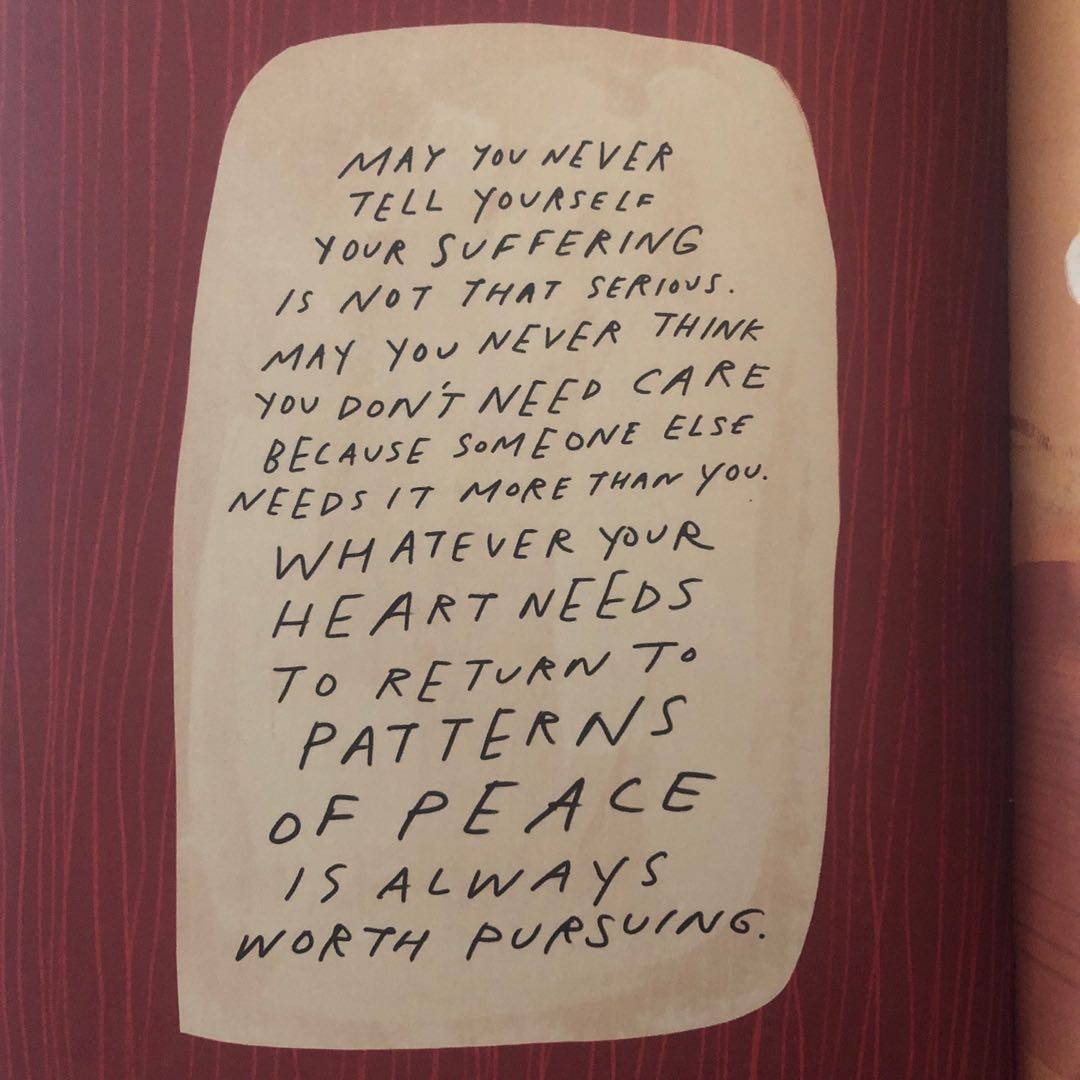 MAY YOU NEVER
TELL YOURSELF
YOUR SUFFERING
IS NOT THAT SERIOUS.
MAY YOU NEVER THINK
YOU DON'T NEED CARE
BECAUSE SOMEONE ELSE
NEEDS IT MORE THAN YOU.
WHATEVER YOUR
HEART NEEDS
TO RETURN TO
PATTERNS
OF PEACE
IS ALWAYS
WORTH PURSUING.